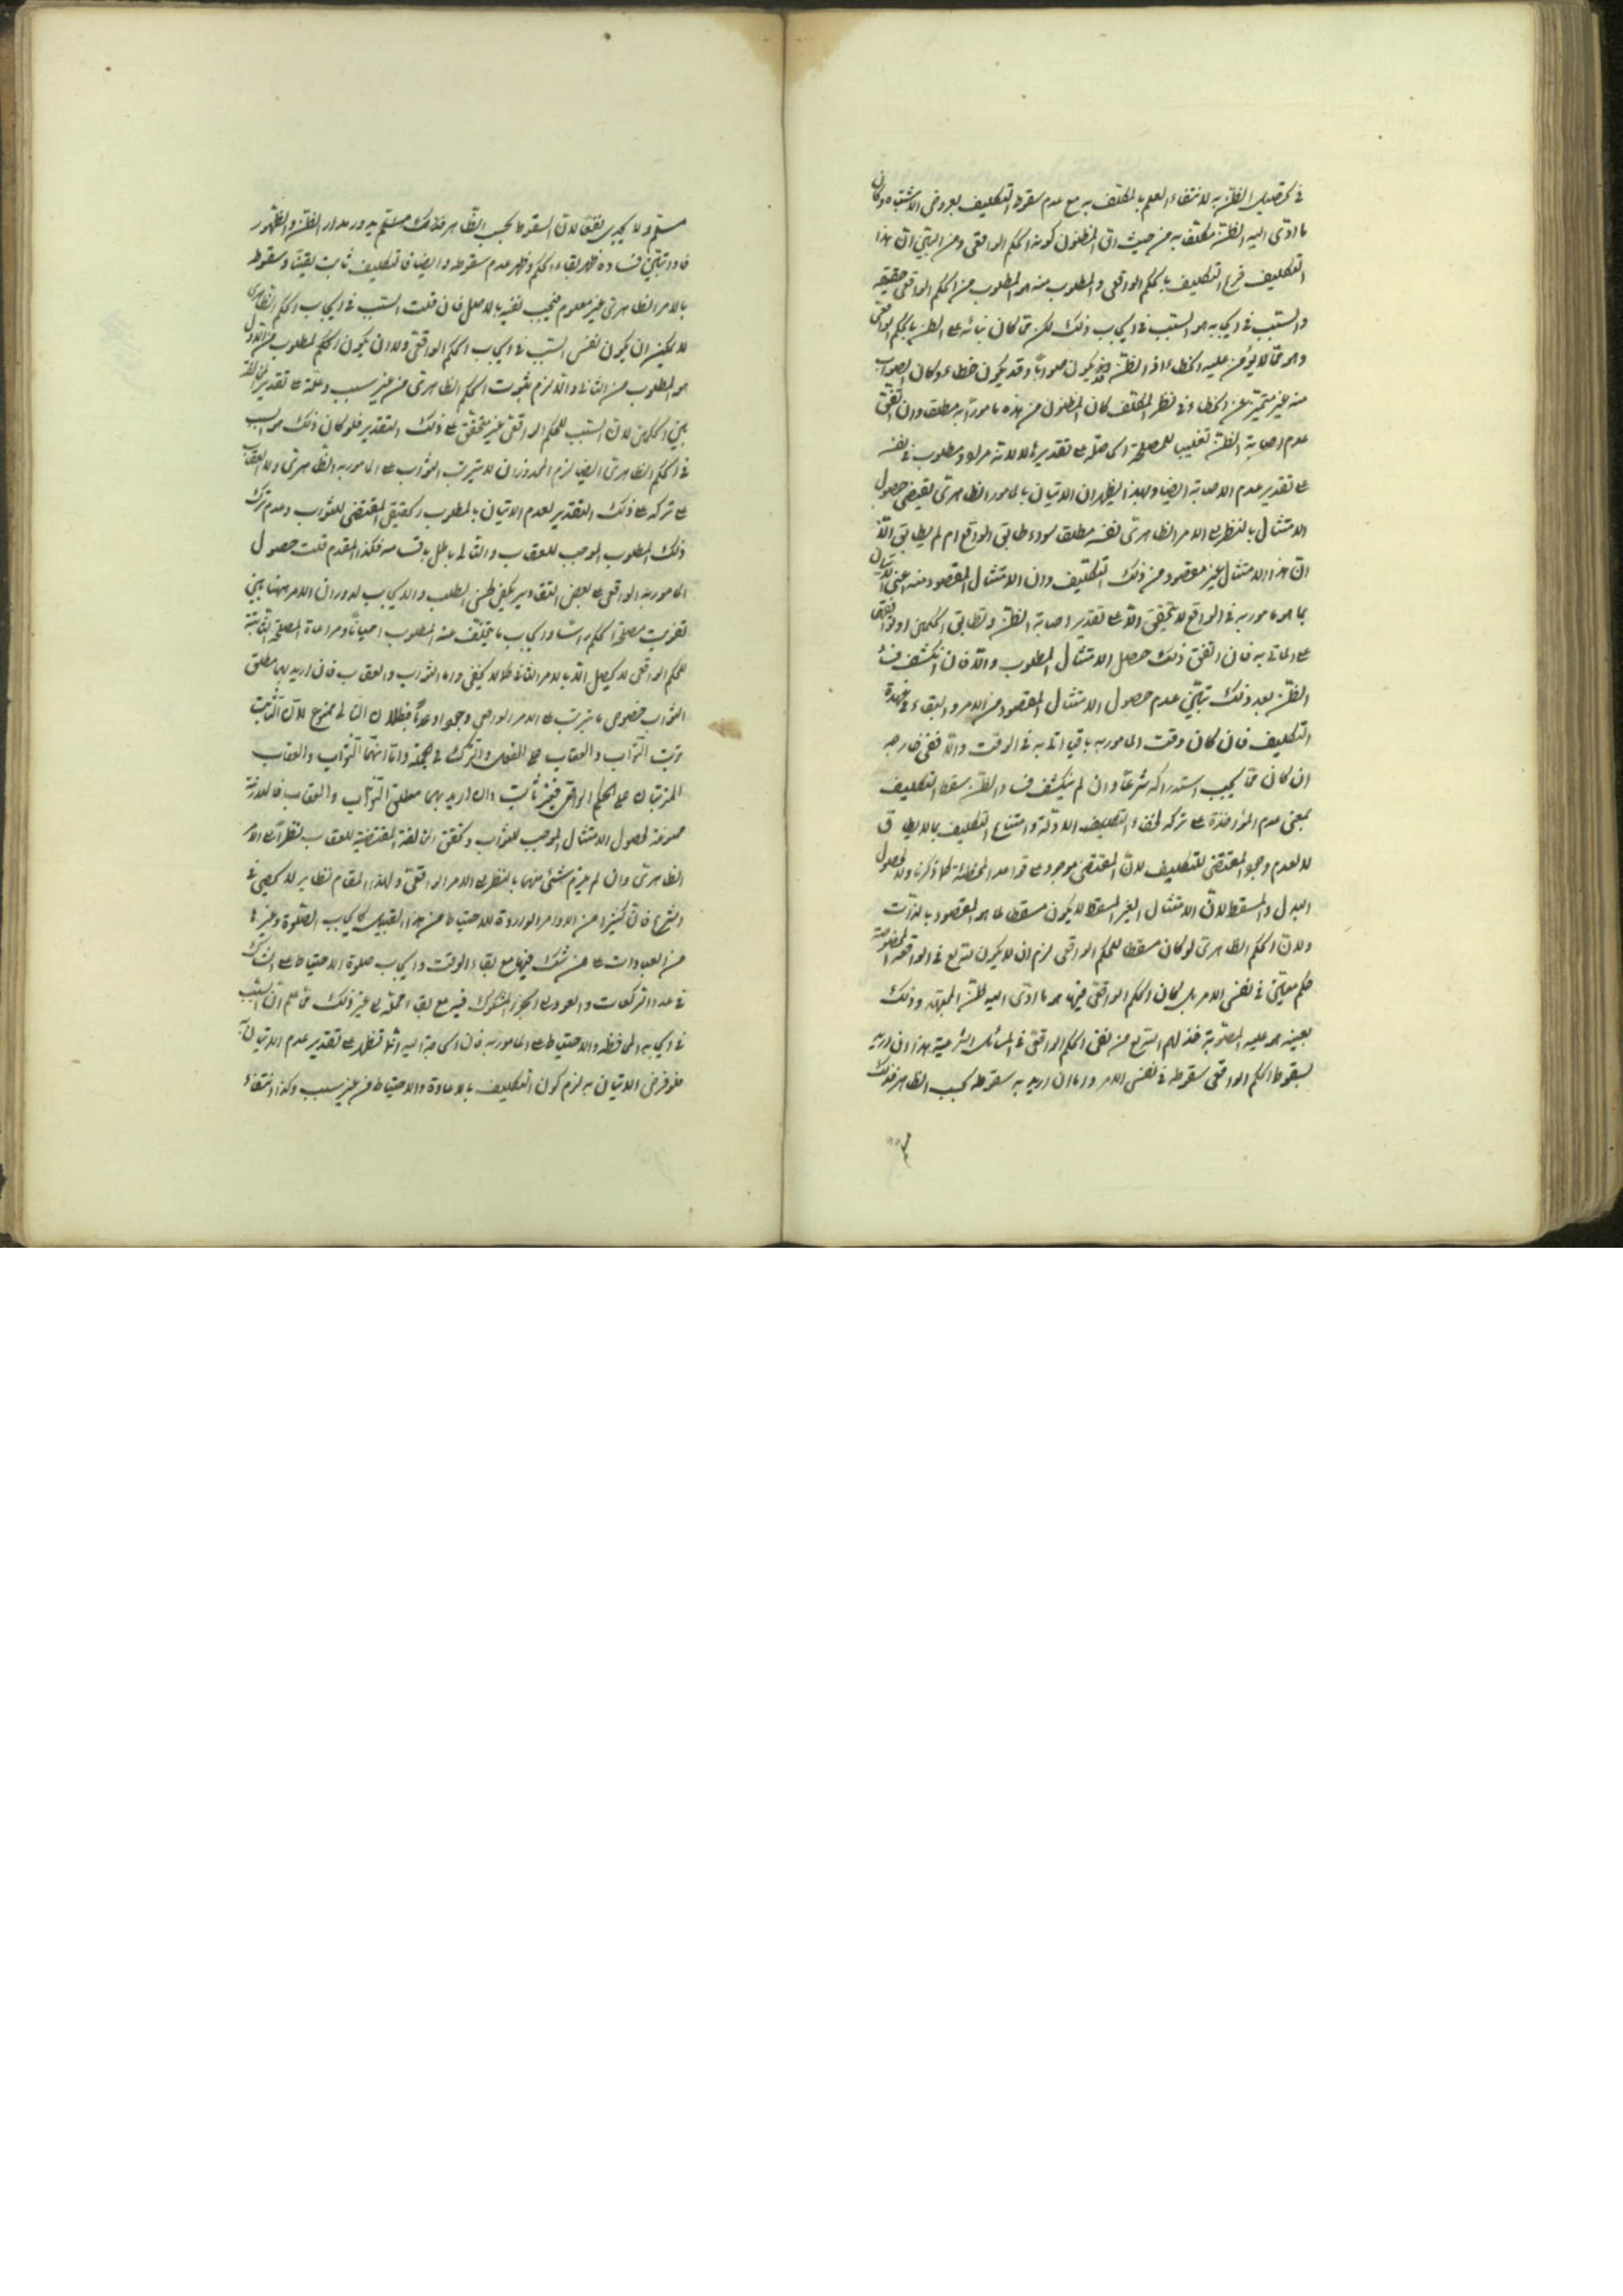 في تحصيل الظن به لانتفاء العلم بالمكلف به مع عدم سقوط التكليف بعروض الاشتباه وكان
ما ادى اليه الظن مكلف به من حيث ان المظنون كونه الحكم الواقعى ومن البين ان هذا
التكليف فرع التكليف بالحكم الواقعى والمطلوب منه هو المطلوب من الحكم الواقعى حقيقة
والسبب في ايجابه هو السبب في ايجاب ذلك لكن لما كان بنائه على الظن بالحكم الواقعى
وهو مما لا يؤمن عليه الخطاء اذ الظن قد يكون صوابا وقد يكون خطاء وكان الصواب
منه غير متميز عن الخطا في نظر المكلف كان المظنون من هذه مامورا به مطلقا وان اتفق
عدم اصابة الظن تغليبا للمصلحة الحاصلة على تقديره لا لانه مراد ومطلوب في نفسه
على تقدير عدم الاصابة ايضا وبهذا يظهر ان الاتيان بالمامور الظاهرى يقتضى حصول
الامتثال بالنظر الى الامر الظاهرى نفسه مطلقا سواء طابق الواقع ام لم يطابق الا
ان هذا الامتثال غير مقصود من ذلك التكليف وان الامتثال المقصود منه اعنى الاتيان
بما هو مامور به في الواقع لا يتحقق الا على تقدير اصابة الظن وتطابق الحكمين
فان اتفق ذلك حصل الامتثال المطلوب والا فان انكشف فساد
الظن بعد ذلك تبين عدم حصول الامتثال المقصود من الامر والبقاء في عهدة
التكليف فان كان وقت المامور به باقيا اتى به في الوقت والا ففى خارجه
ان كان مما يجب استدراكه شرعا وان لم ينكشف فساد الظن سقط التكليف
بمعنى عدم المؤاخذة على تركه لخفاء التكليف الاولى وامتناع التكليف بما لا يطاق
لا لعدم وجود المقتضى للتكليف لان المقتضى موجود على قواعد المخطئة كما ذكرنا ولا لحصول
البدل والمسقط لان الامتثال الغير المسقط لا يكون مسقطا لما هو المقصود بالذات
ولان الحكم الظاهرى لو كان مسقطا للحكم الواقعى لزم ان لا يكون للشرع في الواقعة المخصوصة
حكم معين في نفس الامر بل كان الحكم الواقعى فيها هو ما ادى اليه ظن المجتهد وذلك
بعينه هو عليه المصوبة من نفى الحكم الواقعى في المسائل الشرعية هذا ان اريد
بسقوط الحكم الواقعى سقوطه في نفس الامر واما ان اريد به سقوطه بحسب الظاهر فذلك
مسلم ولا يجدى نفعا لان السقوط بحسب الظاهر يدور مدار الظن والظهور
فاذا تبين فساده ظهر بقاء الحكم وظهر عدم سقوطه وايضا فالتكليف ثابت يقينا وسقوطه
بالامر الظاهرى غير معلوم فيجب نفيه بالاصل فان قلت السبب في ايجاب الحكم الظاهرى
لا يمكن ان يكون نفس السبب في ايجاب الحكم الواقعى ولا ان يكون الحكم المطلوب من الاول
هو المطلوب من الثانى والا لزم ثبوت الحكم الظاهرى من غير سبب وعلة على تقدير المخالفة
بين الحكمين لان السبب للحكم الواقعى غير متحقق على ذلك التقدير فلو كان ذلك هو السبب
في الحكم الظاهرى ايضا لزم المحذور ان لا يترتب الثواب على المامور به الظاهرى ولا العقاب
على تركه على ذلك التقدير لعدم الاتيان بالمطلوب الحقيقى المقتضى للثواب وعدم ترك
ذلك المطلوب الموجب للعقاب والتالى باطل باقسامه فكذا المقدم قلت حصول
المامور به الواقعى على بعض التقادير يكفى لحسن الطلب والايجاب لدوران الامر ههنا بين
تفويت مصلحة الحكم راسا وايجاب ما يتخلف عنه المطلوب احيانا ومراعاة المصلحة الثابتة
للحكم الواقعى لا يحصل الا بالامر الثانى كما لا يخفى واما الثواب والعقاب فان اريد بهما مطلق
الثواب خصوص ما يترتب على الامر الواقعى وجودا وعدما فبطلان التالى ممنوع لان الثابت
ترتب الثواب والعقاب على الفعل والترك في الجملة واما انهما الثواب والعقاب
المرتبان على الحكم الواقعى فغير ثابت وان اريد بهما مطلق الثواب والعقاب فالملازمة
ممنوعة لحصول الامتثال الموجب للثواب وتحقق المخالفة المقتضية للعقاب نظرا الى الامر
الظاهرى وان لم يلزم شئ منهما بالنظر الى الامر الواقعى ولهذا المقام نظاير لا تحصى في
الشرع فان كثيرا من الاوامر الواردة للاحتياط من هذا القبيل كايجاب الصلوة وغيرها
من العبادات على من شك فيها مع بقاء الوقت وايجاب صلوة الاحتياط على الشاك
في عدد الركعات والعود الى الجزء المشكوك فيه مع بقاء محله الى غير ذلك مما علم ان السبب
في ايجابه المحافظة والاحتياط على المامور به فان الحاجة اليه انما تظهر على تقدير عدم الاتيان به
فلو فرض الاتيان به لزم كون التكليف بالاعادة والاحتياط من غير سبب وكذا انتفاء